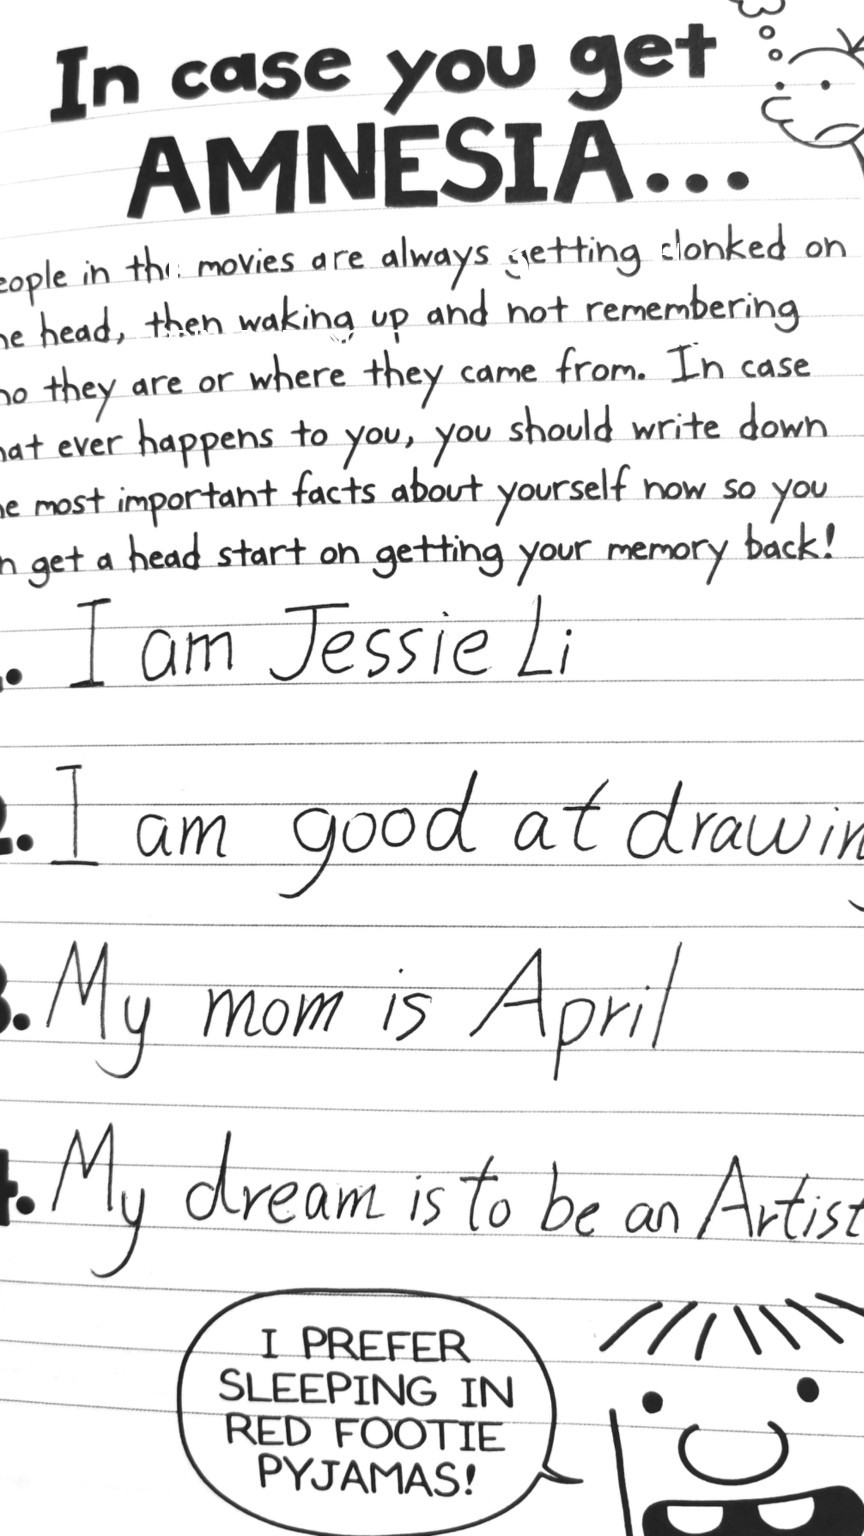 In case you get
AMNESIA...
eople in the movies are always getting clonked on
he head, then waking up and not remembering
ho they are or where they came from. In case
hat ever happens to you, you should write down
he most important facts about yourself now so you
n get a head start on getting your memory back!
1. I am Jessie Li
2. I am good at drawing
3. My mom is April
4. My dream is to be an Artist
I PREFER
SLEEPING IN
RED FOOTIE
PYJAMAS!